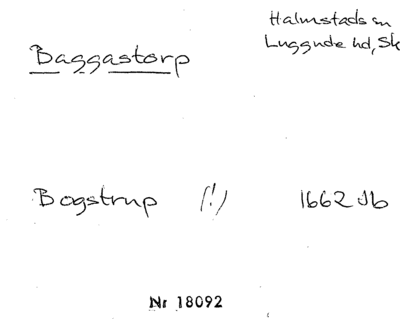 Halmstads sn
Luggude hd, Sk
Baggastorp
Bogstrup (!) 1662 Jb
Nr 18092